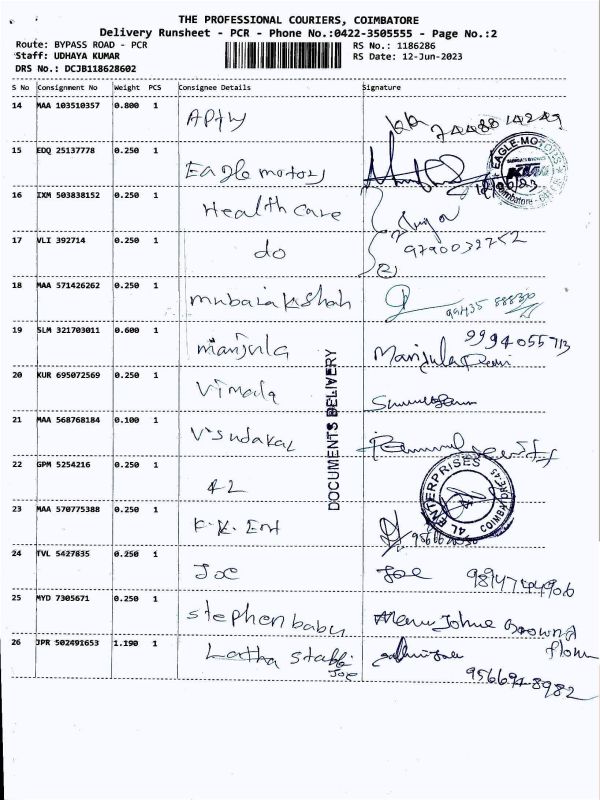 THE PROFESSIONAL COURIERS, COIMBATORE
Delivery Runsheet - PCR - Phone No.:0422-3505555 - Page No.:2
Route: BYPASS ROAD - PCR
RS No.: 1186286
Staff: UDHAYA KUMAR
RS Date: 12-Jun-2023
DRS No.: DCJB118628602
S No Consignment No Weight PCS Consignee Details Signature
14 MAA 103510357 0.800 1
15 EDQ 25137778 0.250 1 Eagle motors
EAGLE MOTORS
KTM
Coimbatore
16 IXM 503838152 0.250 1 Health care
17 VLI 392714 0.250 1 do
18 MAA 571426262 0.250 1 mubarakshah
19 SLM 321703011 0.600 1 manjula Manjula Devi
9994055713
20 KUR 695072569 0.250 1 Vimala
21 MAA 568768184 0.100 1
22 GPM 5254216 0.250 1 4L
4L ENTERPRISES COIMBATORE-45
23 MAA 570775388 0.250 1 K.K. Ent
24 TVL 5427835 0.250 1 Joe Joe
25 MYD 7305671 0.250 1 stephenbabu
26 JPR 502491653 1.190 1 Latha
Joe
DOCUMENTS DELIVERY